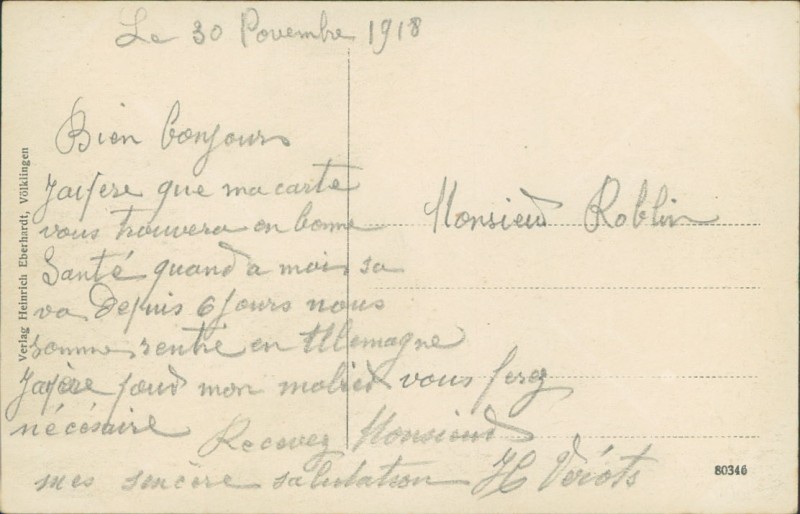 Le 30 Novembre 1918
Bien bonjours
Jaispere que ma carte
vous trouvera en bonne
Santé quand a moi sa
va Depuis 6 jours nous
somme rentré en Allemagne
Jaspère pour mon vous ferez
nécésaire
Recevez Monsieur
mes sencère salutation H
Monsieur Roblin
Verlag Heinrich Eberhardt, Völklingen
80346